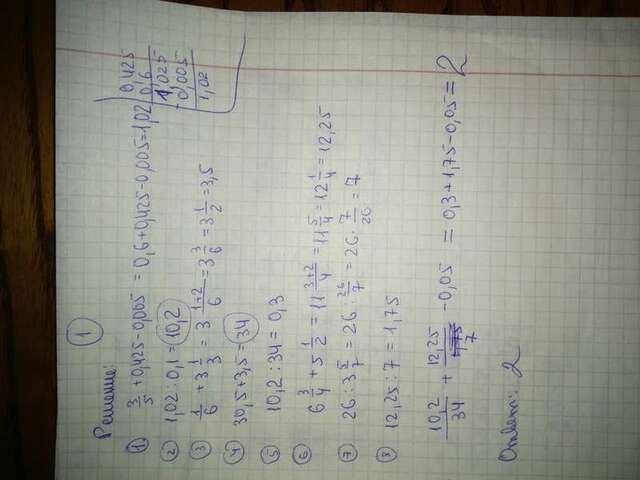 1
Решение:
① 3/5 + 0,425 - 0,005 = 0,6 + 0,425 - 0,005 = 1,02
0,425
0,6
1,025
- 0,005
1,02
② 1,02 : 0,1 = 10,2
③ 1/6 + 3 1/3 = 3 (1+2)/6 = 3 3/6 = 3 1/2 = 3,5
④ 30,5 + 3,5 = 34
⑤ 10,2 : 34 = 0,3
⑥ 6 3/4 + 5 1/2 = 11 (3+2)/4 = 11 5/4 = 12 1/4 = 12,25
⑦ 26 : 3 5/7 = 26 : 26/7 = 26 · 7/26 = 7
⑧ 12,25 : 7 = 1,75
10,2/34 + 12,25/7 - 0,05 = 0,3 + 1,75 - 0,05 = 2
Ответ: 2